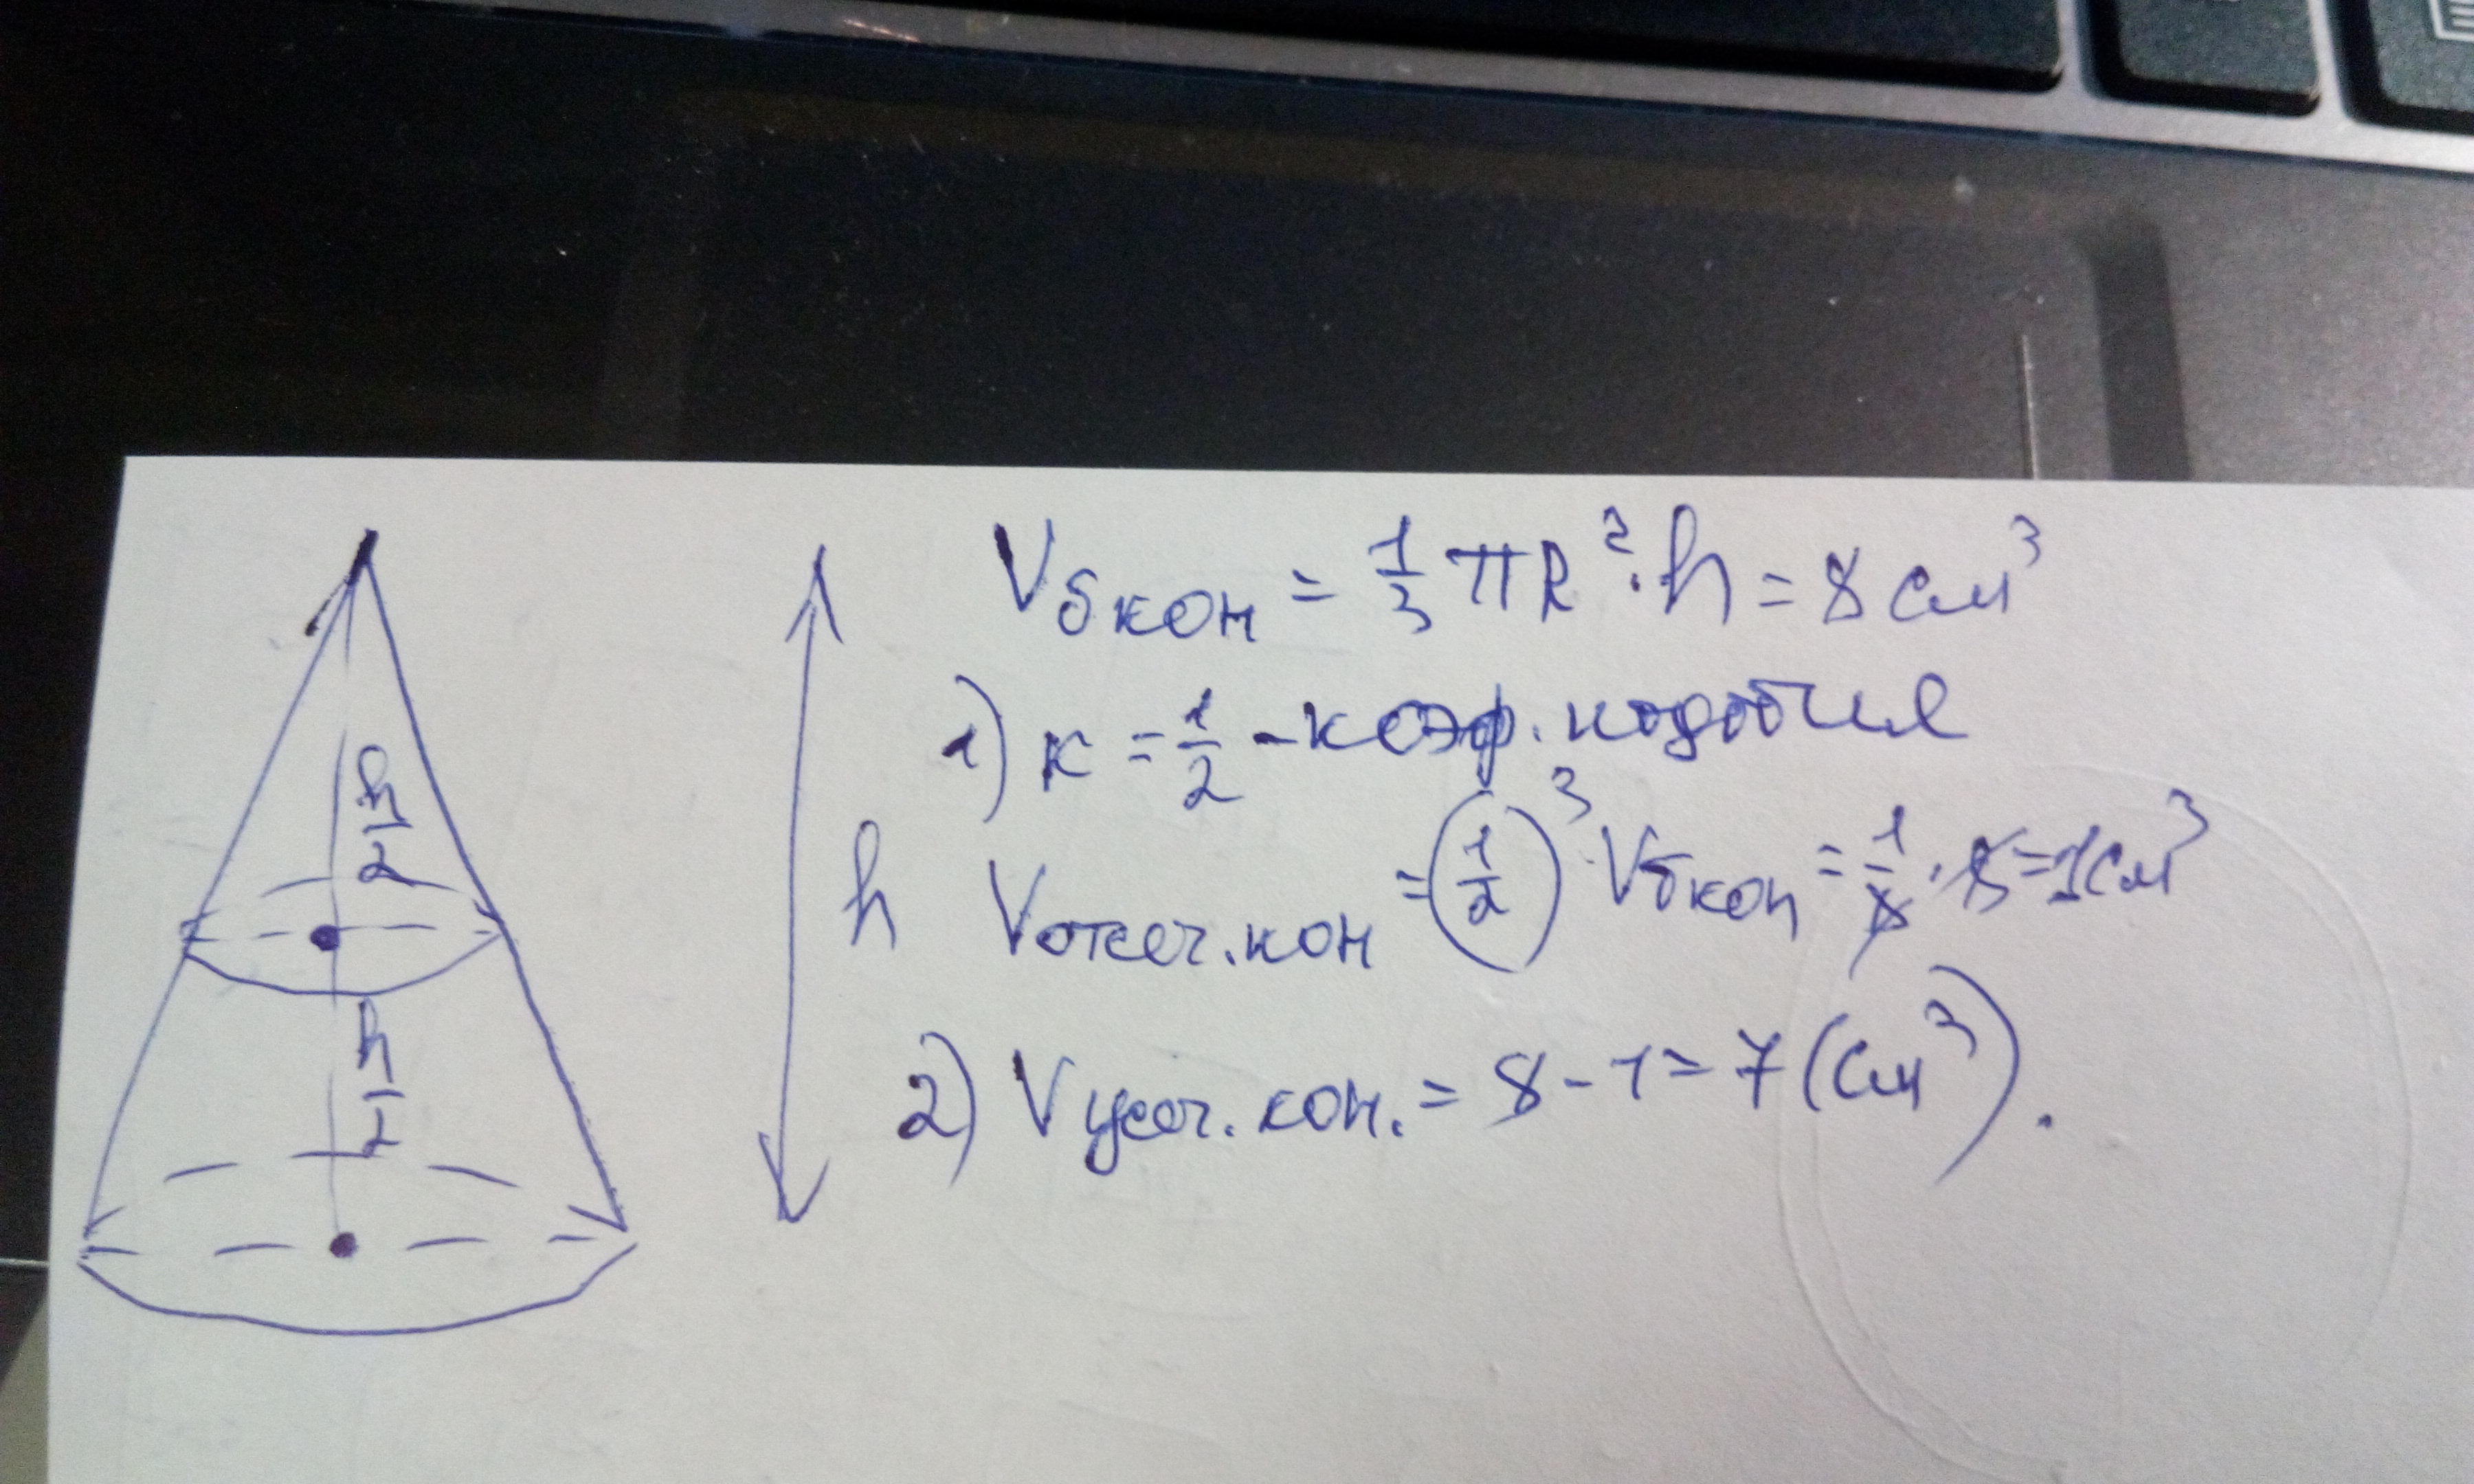 h/2
h/2
h
Vбкон = 1/3 πR²·h = 8 см³
1) к = 1/2 - коэф. подобия
Vотсеч.кон = (1/2)³·Vбкон = 1/8·8=1см³
2) Vусеч.кон. = 8-1=7(см³).